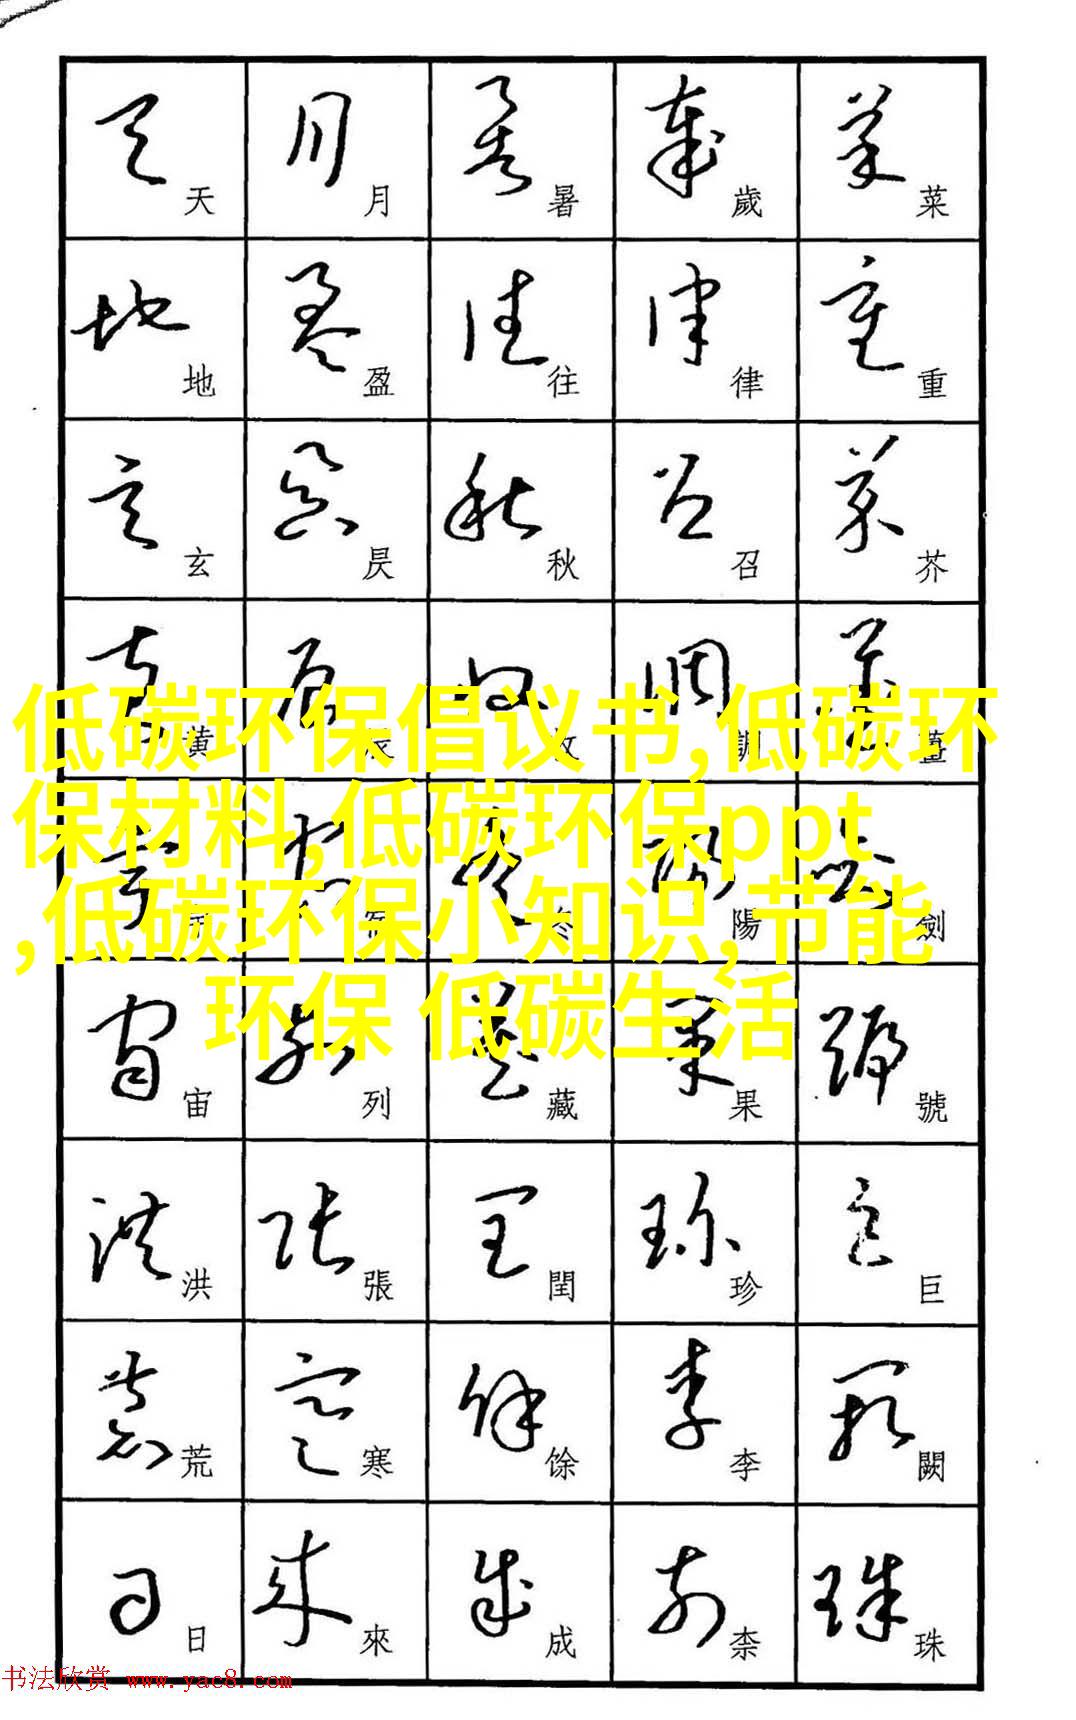 天地玄黄宇宙洪荒日
月盈昃辰宿列張寒來
暑往秋收冬藏閏馀成
歲律召調陽果珍李柰
菜重芥薑劍號巨闕珠
低碳环保倡议书,低碳环
保材料,低碳环保ppt
,低碳环保小知识,节能
环保 低碳生活
书法欣赏 www.yac8.com